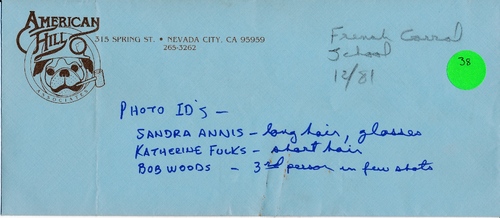 AMERICAN
HILL
ASSOCIATES
315 SPRING ST. • NEVADA CITY, CA 95959
265-3262
French Corral
School
12/81
38
PHOTO ID's —
SANDRA ANNIS — long hair, glasses
KATHERINE FULKS — short hair
BOB WOODS — 3rd person in few shots